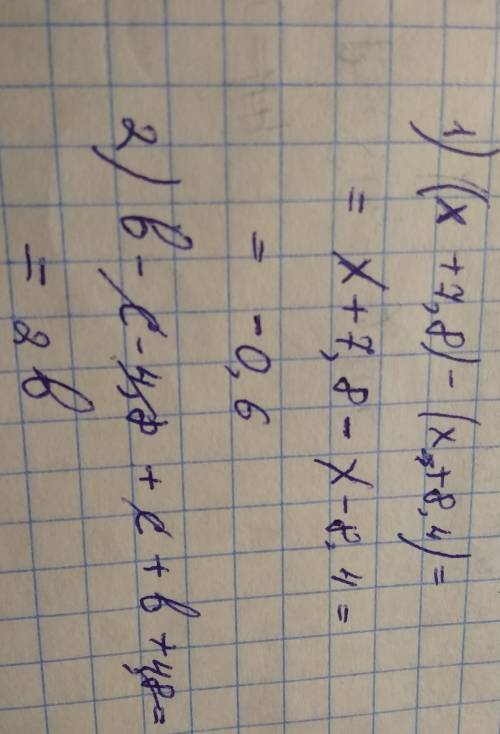 1) (x + 7,8) - (x + 8,4) =
= x + 7,8 - x - 8,4 =
= -0,6
2) b - c - 4,8 + c + b + 4,8 =
= 2b